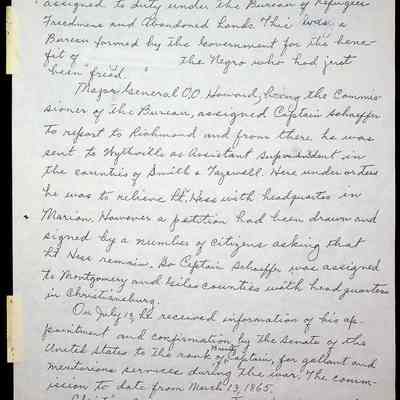 assigned to duty under the Bureau of Refugees
Freedmen and Abandoned Lands. This was a
Bureau formed by the Government for the bene-
fit of the Negro who had just
been "fried."
Major General O.O. Howard, being the Commis-
sioner of the Bureau, assigned Captain Schaeffer
to report to Richmond and from there he was
sent to Wytheville as Assistant Superintendent in
the counties of Smith & Tazewell. Here under orders
he was to relieve Lt. Hess with headquarters in
Marion. However a petition had been drawn and
signed by a number of citizens asking that
Lt Hess remain. So Captain Schaeffer was assigned
to Montgomery and Giles counties with headquarters
in Christiansburg.
On July 13, he received information of his ap-
pointment and confirmation by the Senate of the
United States to the rank of Captain, for gallant and
meritorious services during the war. The comm-
ission to date from March 13, 1865.